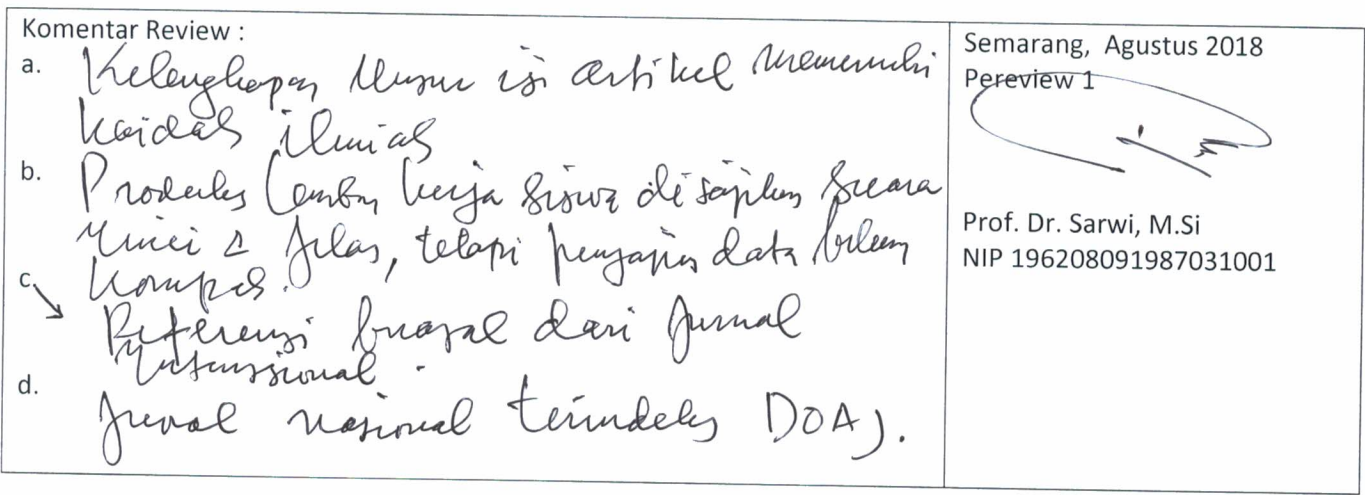 Komentar Review :
a. Kelengkapan Unsur isi artikel memenuhi
kaidah ilmiah
b. Produk lembar kerja siswa disajikan secara
rinci & jelas, tetapi penyajian data belum
kompak.
c. Referensi berasal dari Jurnal
Internasional.
d. Jurnal nasional terindeks DOAJ.
Semarang, Agustus 2018
Pereview 1
Prof. Dr. Sarwi, M.Si
NIP 196208091987031001